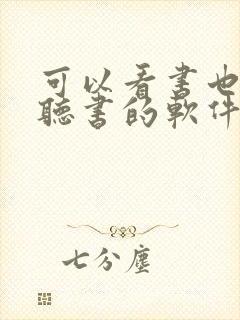 可以看书也
聽書的軟件
七分塵